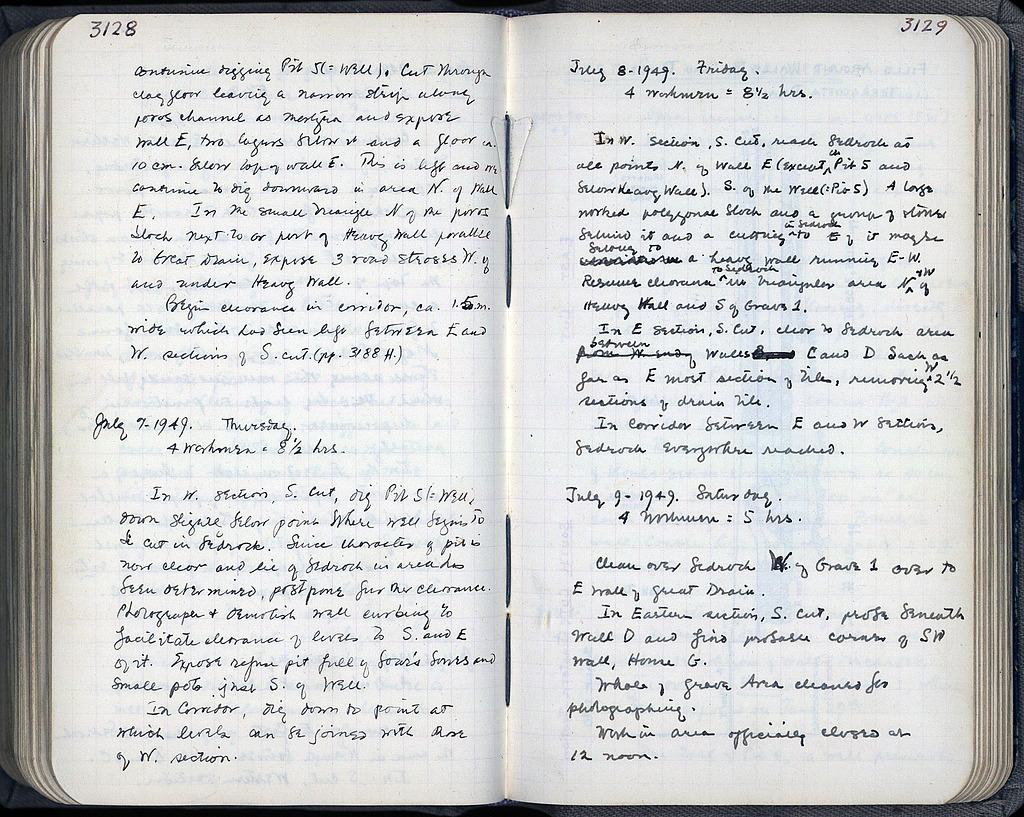 3128
continue digging Pit 5 (= Well). Cut through
clay floor leaving a narrow strip along
poros channel as martyra and expose
Wall E, two layers below it and a floor ca.
10 cm. below top of wall E. This is left and we
continue to dig downward in area N. of Wall
E. In the small triangle N of the poros
block next to or part of Heavy Wall parallel
to Great Drain, expose 3 road stroses W. of
and under Heavy Wall.
Begin clearance in corridor, ca. 1.5 m.
wide which had been left between E and
W. sections of S. cut. (pp. 3188 ff.)
July 7-1949. Thursday.
4 Workmen = 8½ hrs.
In W. Section, S. Cut, dig Pit 5 (= Well)
down slightly below point where well begins to
be cut in bedrock. Since character of pit is
now clear and lie of bedrock in area has
been determined, postpone further clearance.
Photograph & demolish well curbing to
facilitate clearance of levels to S. and E
of it. Expose refuse pit full of boar's bones and
small pots just S. of Well.
In Corridor, dig down to point at
which levels can be joined with those
of W. section.
3129
July 8-1949. Friday.
4 Workmen = 8½ hrs.
In W. Section, S. Cut, reach bedrock at
all points N. of Wall E (except in Pit 5 and
below Heavy Wall). S. of the Well (= Pit 5) A large
worked polygonal block and a group of stones
behind it and a cutting in bedrock to E of it may be
belong to a heavy wall running E-W.
Resume clearance to bedrock in triangular area N. + W of
Heavy Wall and S of Grave 1.
In E Section, S. Cut, clear to bedrock area
between Walls C and D back as
far as E most section of tiles, removing W 2½
sections of drain tile.
In Corridor between E and W Section,
bedrock everywhere reached.
July 9-1949. Saturday.
4 Workmen = 5 hrs.
Clean over bedrock W. of Grave 1 over to
E wall of Great Drain.
In Eastern section, S. Cut, probe beneath
Wall D and find probable corner of SW
Wall, House G.
Whole of Grave Area cleaned for
photographing.
Work in area officially closed at
12 noon.